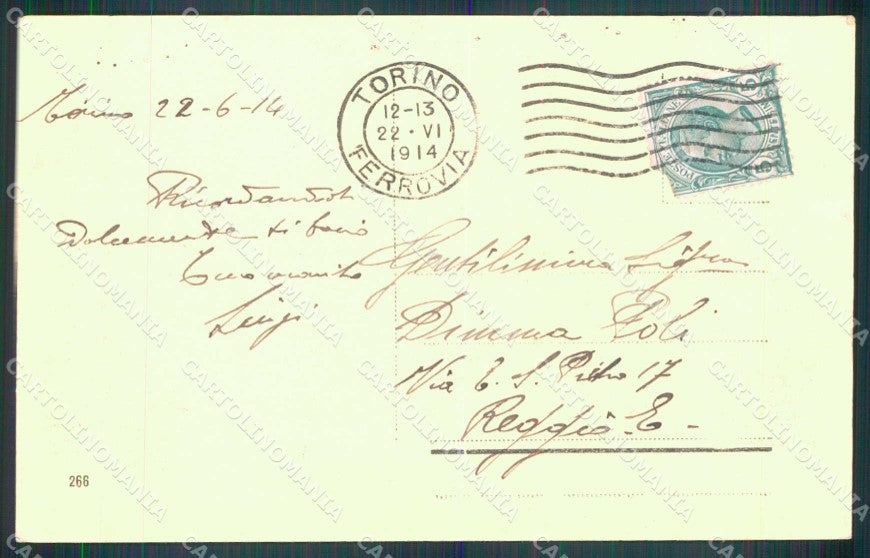 Torino 22-6-14
TORINO
12-13
22·VI
1914
FERROVIA
Ricordandoti
Dolcemente ti bacio
tuo marito
Luigi
Gentilissima Sigra
Dimma Poli
Via E. S. Pietro 17
Reggio - E -
266
CARTOLINOMANIA